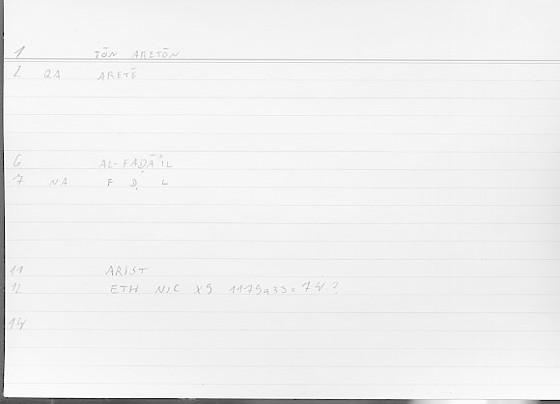 1 TŌN ARETŌN
2 QA ARETĒ
6 AL-FAḌĀʾIL
7 NA F Ḍ L
11 ARIST
12 ETH NIC X9 1179a33 = 74?
14